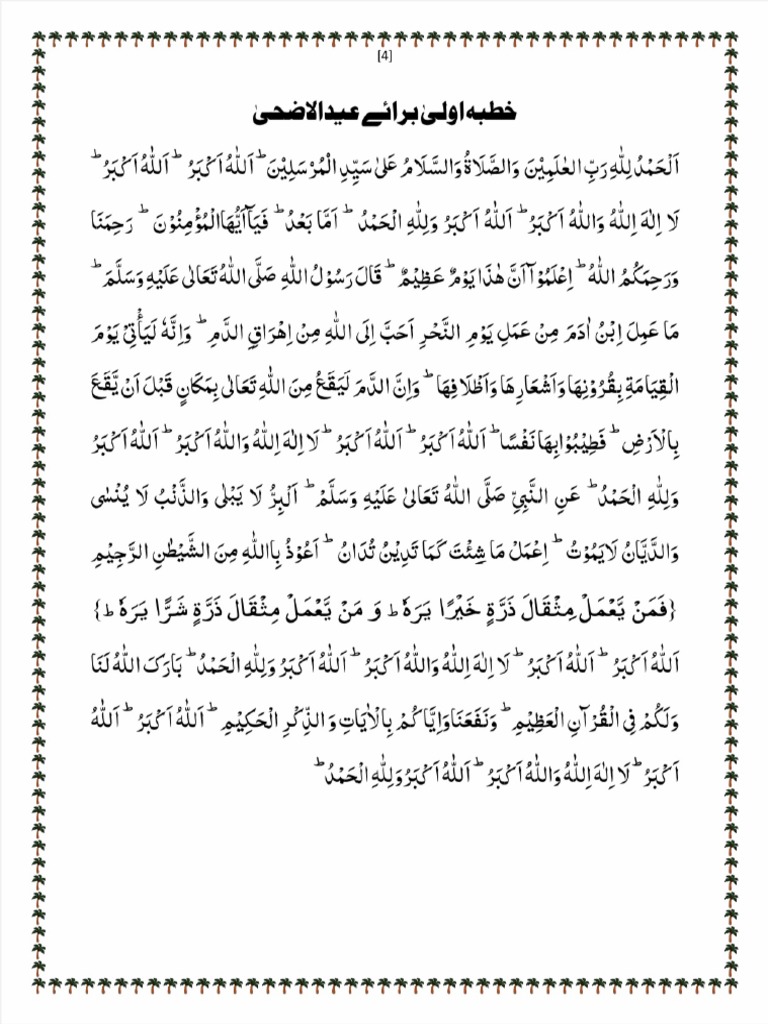 [4]
خطبہ اولیٰ برائے عیدالاضحیٰ
اَلْحَمْدُ لِلّٰهِ رَبِّ الْعٰلَمِیْنَ وَالصَّلَاۃُ وَالسَّلَامُ عَلٰی سَیِّدِ الْمُرْسَلِیْنَ ؕ اَللّٰهُ اَکْبَرُ ؕ اَللّٰهُ اَکْبَرُ ؕ
لَا اِلٰهَ اِلَّا اللّٰهُ وَاللّٰهُ اَکْبَرُ ؕ اَللّٰهُ اَکْبَرُ وَلِلّٰهِ الْحَمْدُ ؕ اَمَّا بَعْدُ ؕ فَیَآاَیُّهَا الْمُؤْمِنُوْنَ ؕ رَحِمَنَا
وَرَحِمَکُمُ اللّٰهُ ؕ اِعْلَمُوْآ اَنَّ هٰذَا یَوْمٌ عَظِیْمٌ ؕ قَالَ رَسُوْلُ اللّٰهِ صَلَّی اللّٰهُ تَعَالٰی عَلَیْهِ وَسَلَّمَ ؕ
مَا عَمِلَ اِبْنُ اٰدَمَ مِنْ عَمَلِ یَوْمِ النَّحْرِ اَحَبَّ اِلَی اللّٰهِ مِنْ اِهْرَاقِ الدَّمِ ؕ وَاِنَّهٗ لَیَأْتِیْ یَوْمَ
الْقِیَامَةِ بِقُرُوْنِهَا وَاَشْعَارِهَا وَاَظْلَافِهَا ؕ وَاِنَّ الدَّمَ لَیَقَعُ مِنَ اللّٰهِ تَعَالٰی بِمَکَانٍ قَبْلَ اَنْ یَّقَعَ
بِالْاَرْضِ ؕ فَطِیْبُوْا بِهَا نَفْسًا ؕ اَللّٰهُ اَکْبَرُ ؕ اَللّٰهُ اَکْبَرُ ؕ لَا اِلٰهَ اِلَّا اللّٰهُ وَاللّٰهُ اَکْبَرُ ؕ اَللّٰهُ اَکْبَرُ
وَلِلّٰهِ الْحَمْدُ ؕ عَنِ النَّبِیِّ صَلَّی اللّٰهُ تَعَالیٰ عَلَیْهِ وَسَلَّمْ ؕ اَلْبِرُّ لَا یَبْلٰی وَالذَّنْبُ لَا یُنْسٰی
وَالدَّیَّانُ لَایَمُوْتُ ؕ اِعْمَلْ مَا شِئْتَ کَمَا تَدِیْنُ تُدَانُ ؕ اَعُوْذُ بِااللّٰهِ مِنَ الشَّیْطٰنِ الرَّجِیْمِ
{فَمَنْ یَّعْمَلْ مِثْقَالَ ذَرَّةٍ خَیْرًا یَرَهٗ ط وَ مَنْ یَّعْمَلْ مِثْقَالَ ذَرَّةٍ شَرًّا یَرَهٗ ط}
اَللّٰهُ اَکْبَرُ ؕ اَللّٰهُ اَکْبَرُ ؕ لَا اِلٰهَ اِلَّا اللّٰهُ وَاللّٰهُ اَکْبَرُ ؕ اَللّٰهُ اَکْبَرُ وَلِلّٰهِ الْحَمْدُ ؕ بَارَکَ اللّٰهُ لَنَا
وَلَکُمْ فِی الْقُرْآنِ الْعَظِیْمِ ؕ وَنَفَعَنَا وَاِیَّاکُمْ بِالْاٰیَاتِ وَ الذِّکْرِ الْحَکِیْمِ ؕ اَللّٰهُ اَکْبَرُ ؕ اَللّٰهُ
اَکْبَرُ ؕ لَا اِلٰهَ اِلَّا اللّٰهُ وَاللّٰهُ اَکْبَرُ ؕ اَللّٰهُ اَکْبَرُ وَلِلّٰهِ الْحَمْدُ ؕ